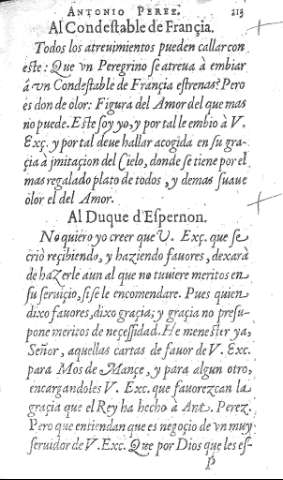 ANTONIO PEREZ. 213
Al Condestable de Françia.
Todos los atreuimientos pueden callar con
este: Que vn Peregrino se atreua à embiar
á vn Condestable de Françia estrenas? Pero
és don de olor: Figura del Amor del que mas
no puede. Este soy yo, y por tal le embio à V.
Exç. y por tal deue hallar acogida en su gra-
çia à jmitaçion del Çielo, donde se tiene por el
mas regalado plato de todos, y de mas suaue
ólor el del Amor.
Al Duque d'Espernon.
No quiero yo creer que V. Exç. que se
crió reçibiendo, y haziendo fauores, dexará
de hazerle aun al que no tuuiere meritos en
su seruiçio, si se le encomendare. Pues quien
dixo fauores, dixo graçia; y graçia no presu-
pone meritos de neçessidad. He menester ya,
Señor, aquellas cartas de fauor de V. Exc.
para Mos de Mançe, y para algun otro,
encargandoles V. Exc. que fauorezcan la
graçia que el Rey ha hecho à Ant. Perez.
Pero que entiendan que es negoçio de vn muy
seruidor de V. Exc. Que por Dios que les es-
P